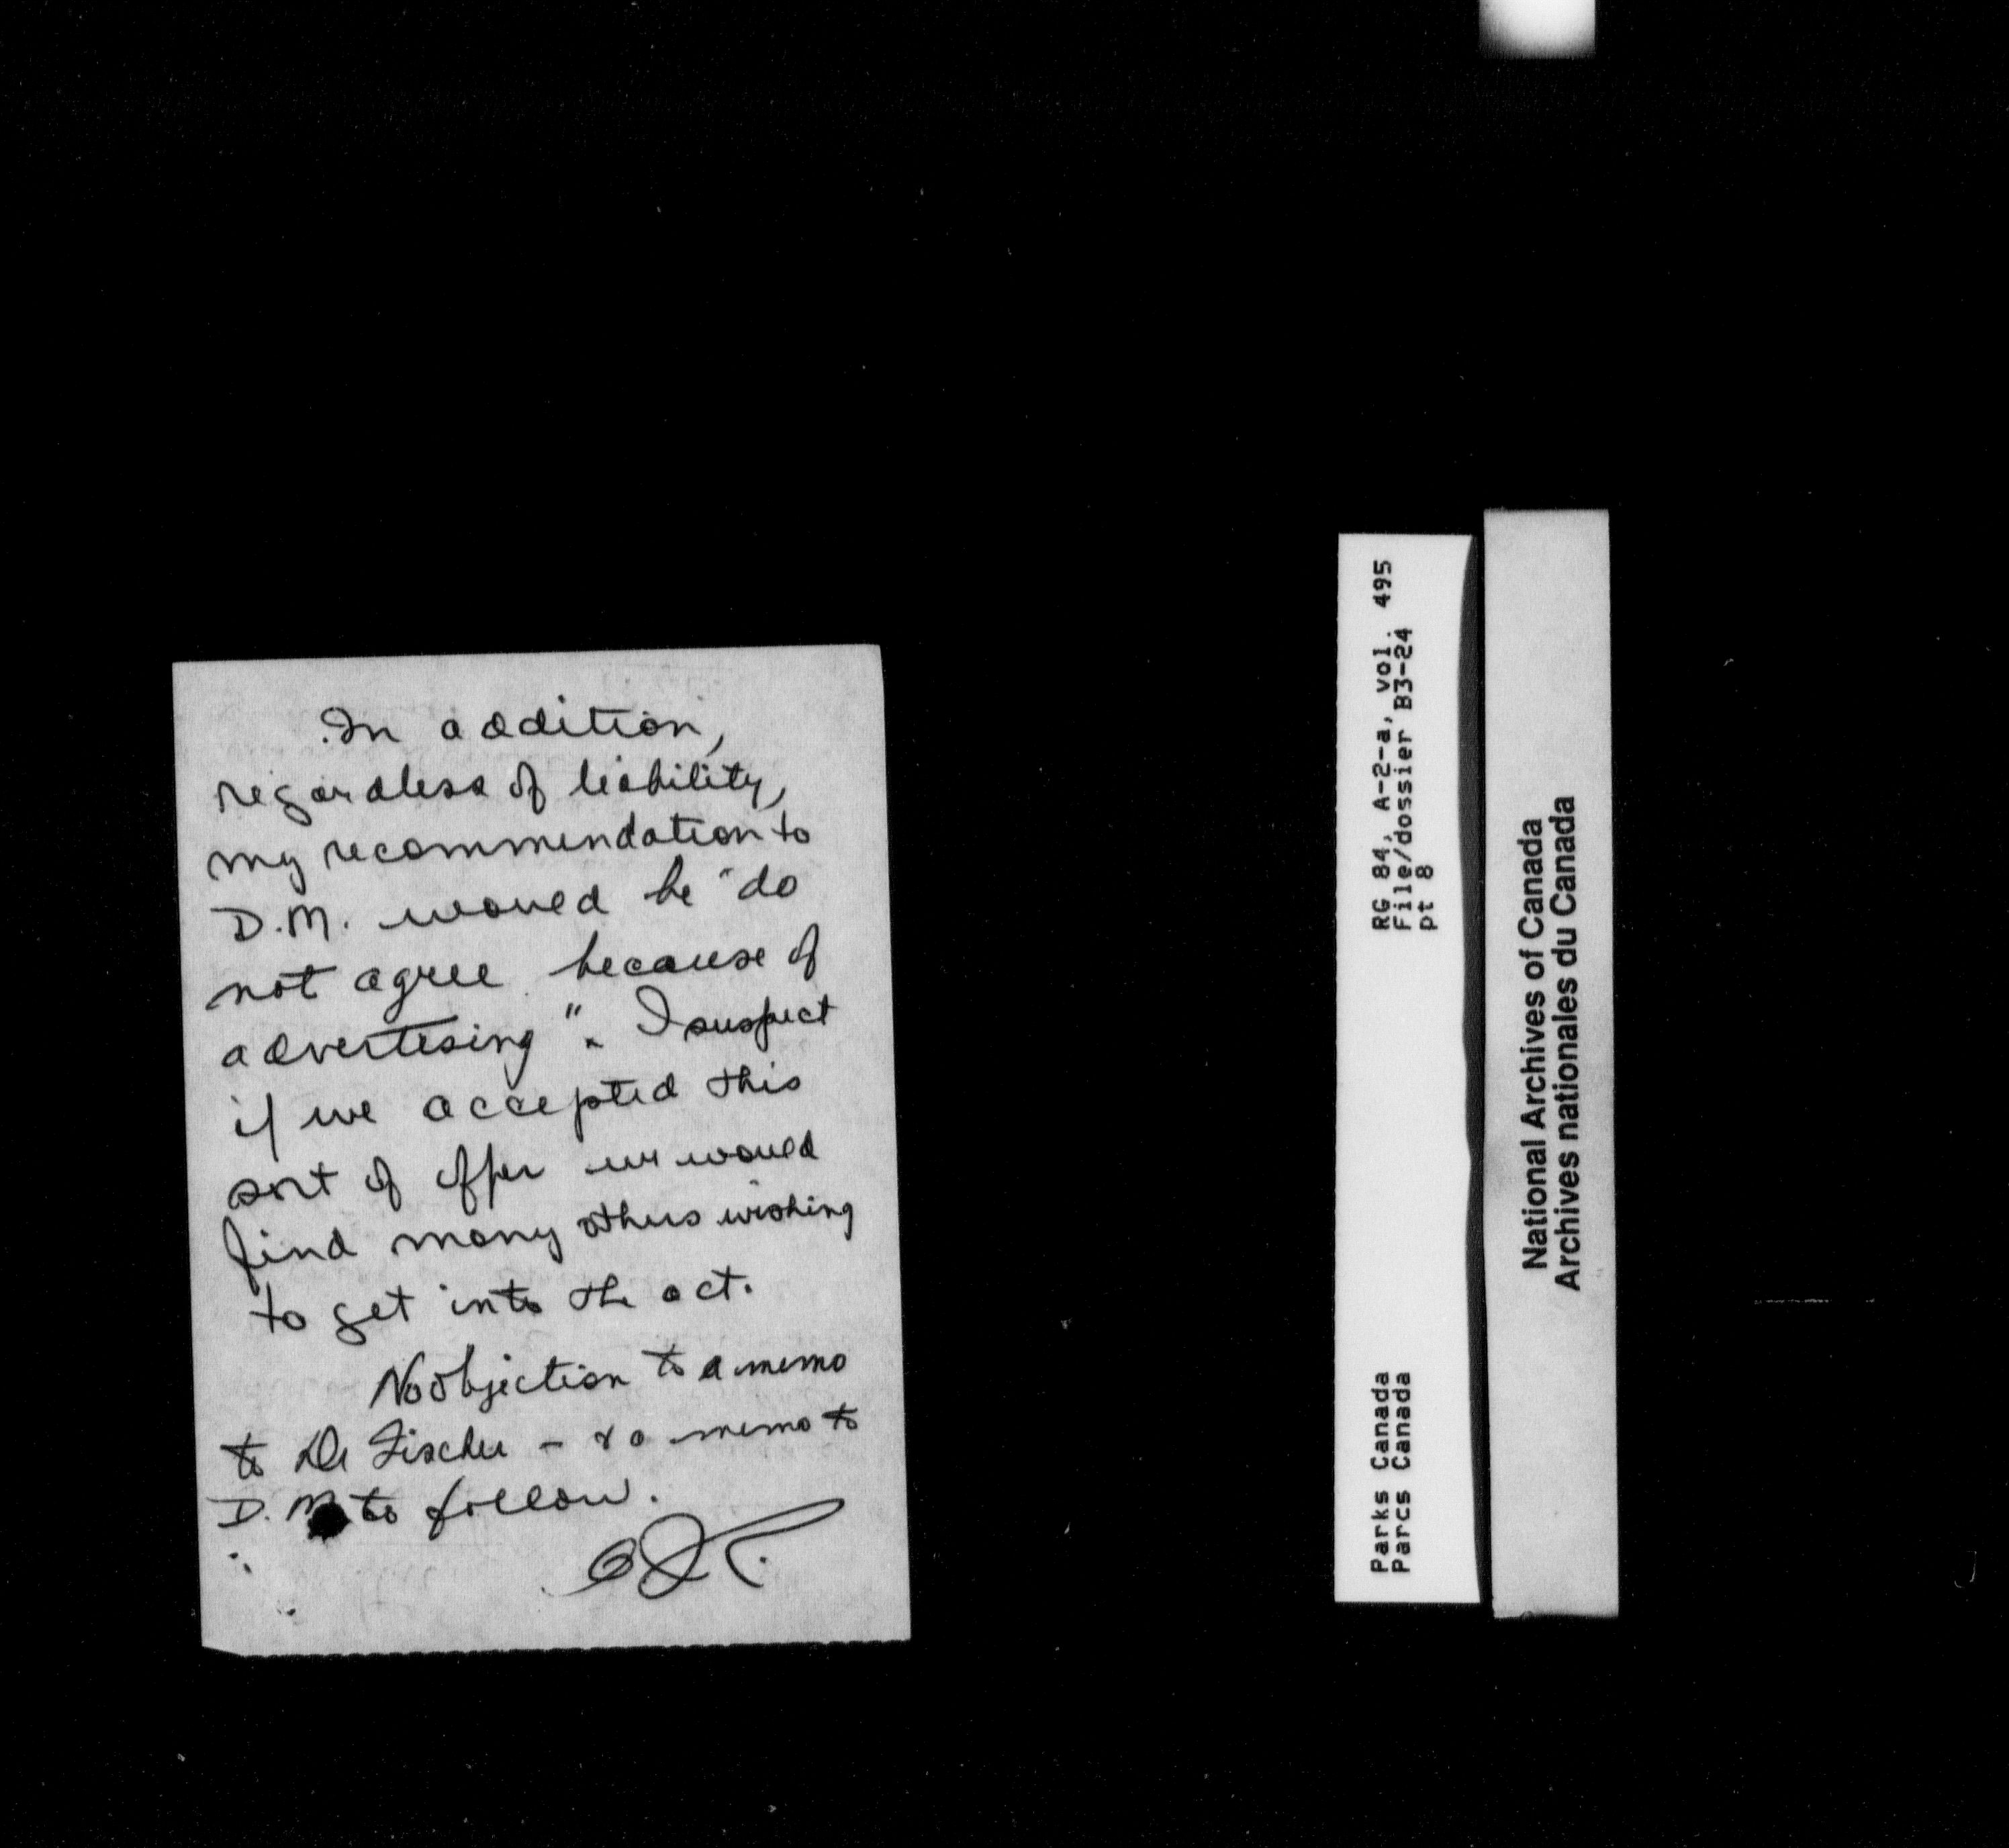 In addition,
regardless of liability,
my recommendation to
D.M. would be "do
not agree because of
advertising". I suspect
if we accepted this
sort of offer we would
find many others wishing
to get into the act.
No objection to a memo
to Dr Fischer - & a memo to
D.M to follow.
RG 84, A-2-a, vol. 495
File/dossier B3-24
pt 8
Parks Canada
Parcs Canada
National Archives of Canada
Archives nationales du Canada